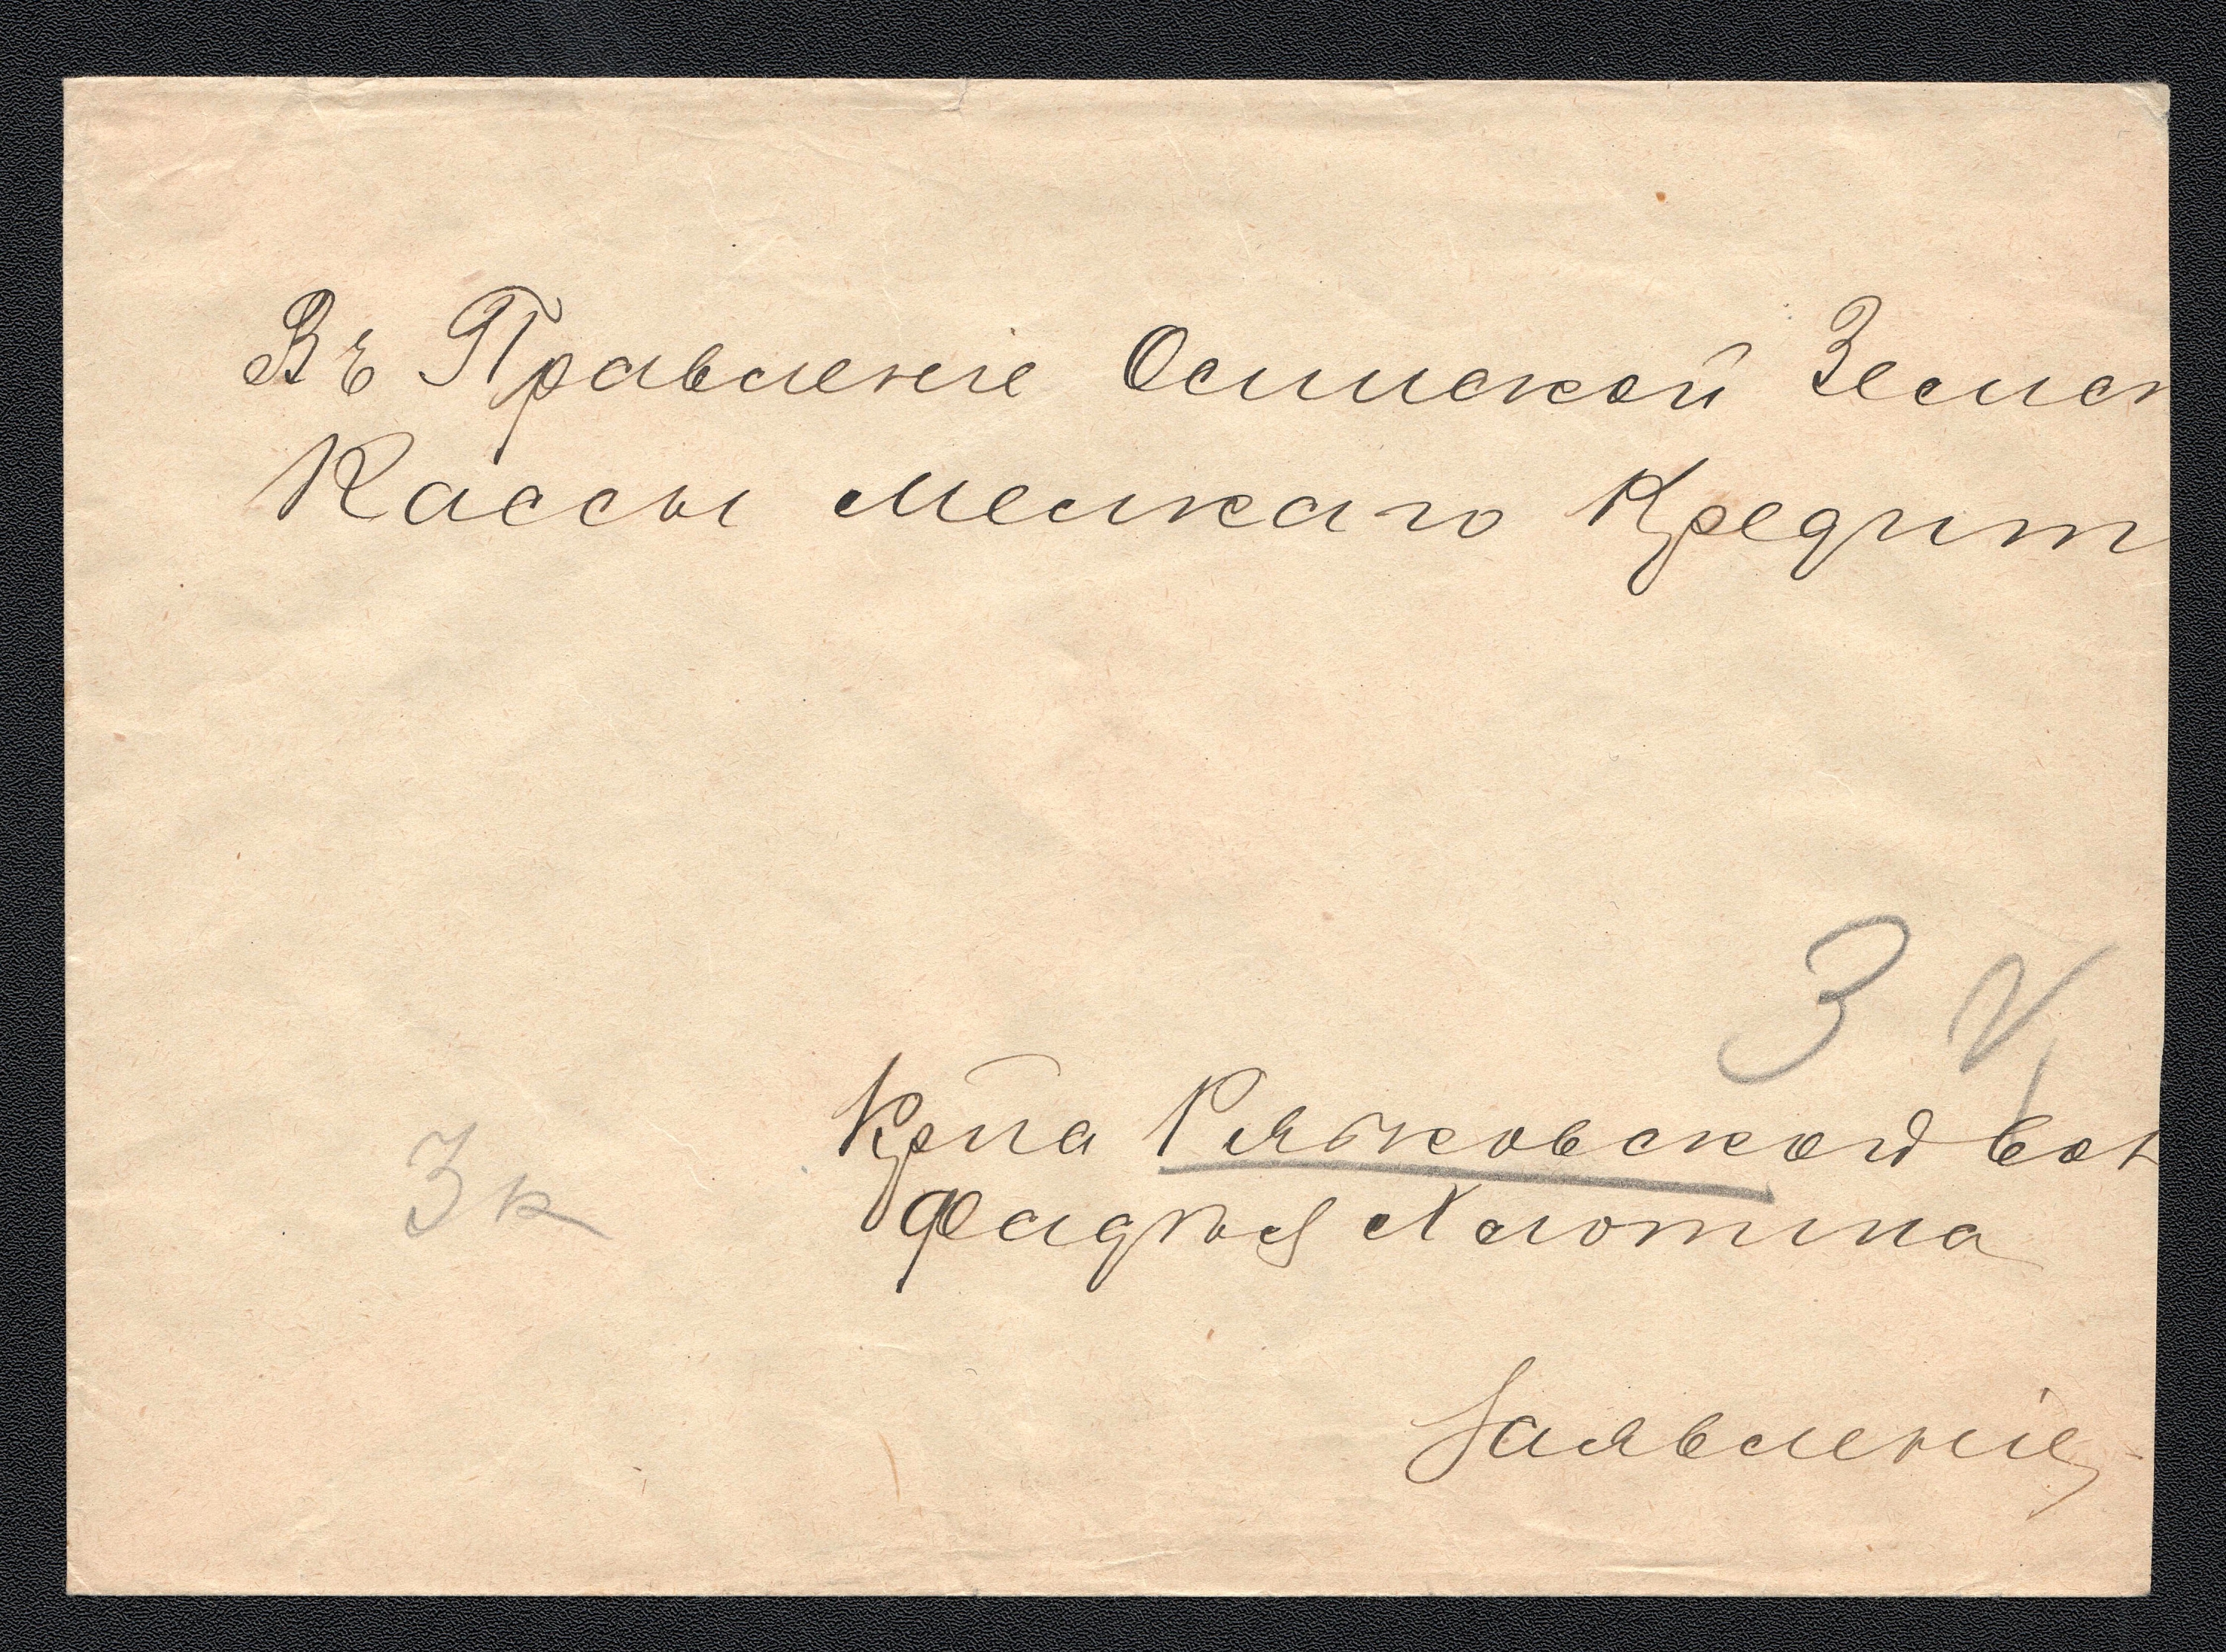 Въ Правленіе Осинской Земск
Кассы мелкаго Кредит
3
3 к
Крпа Рябковской вол
Фадѣя Малютина
Заявленіе